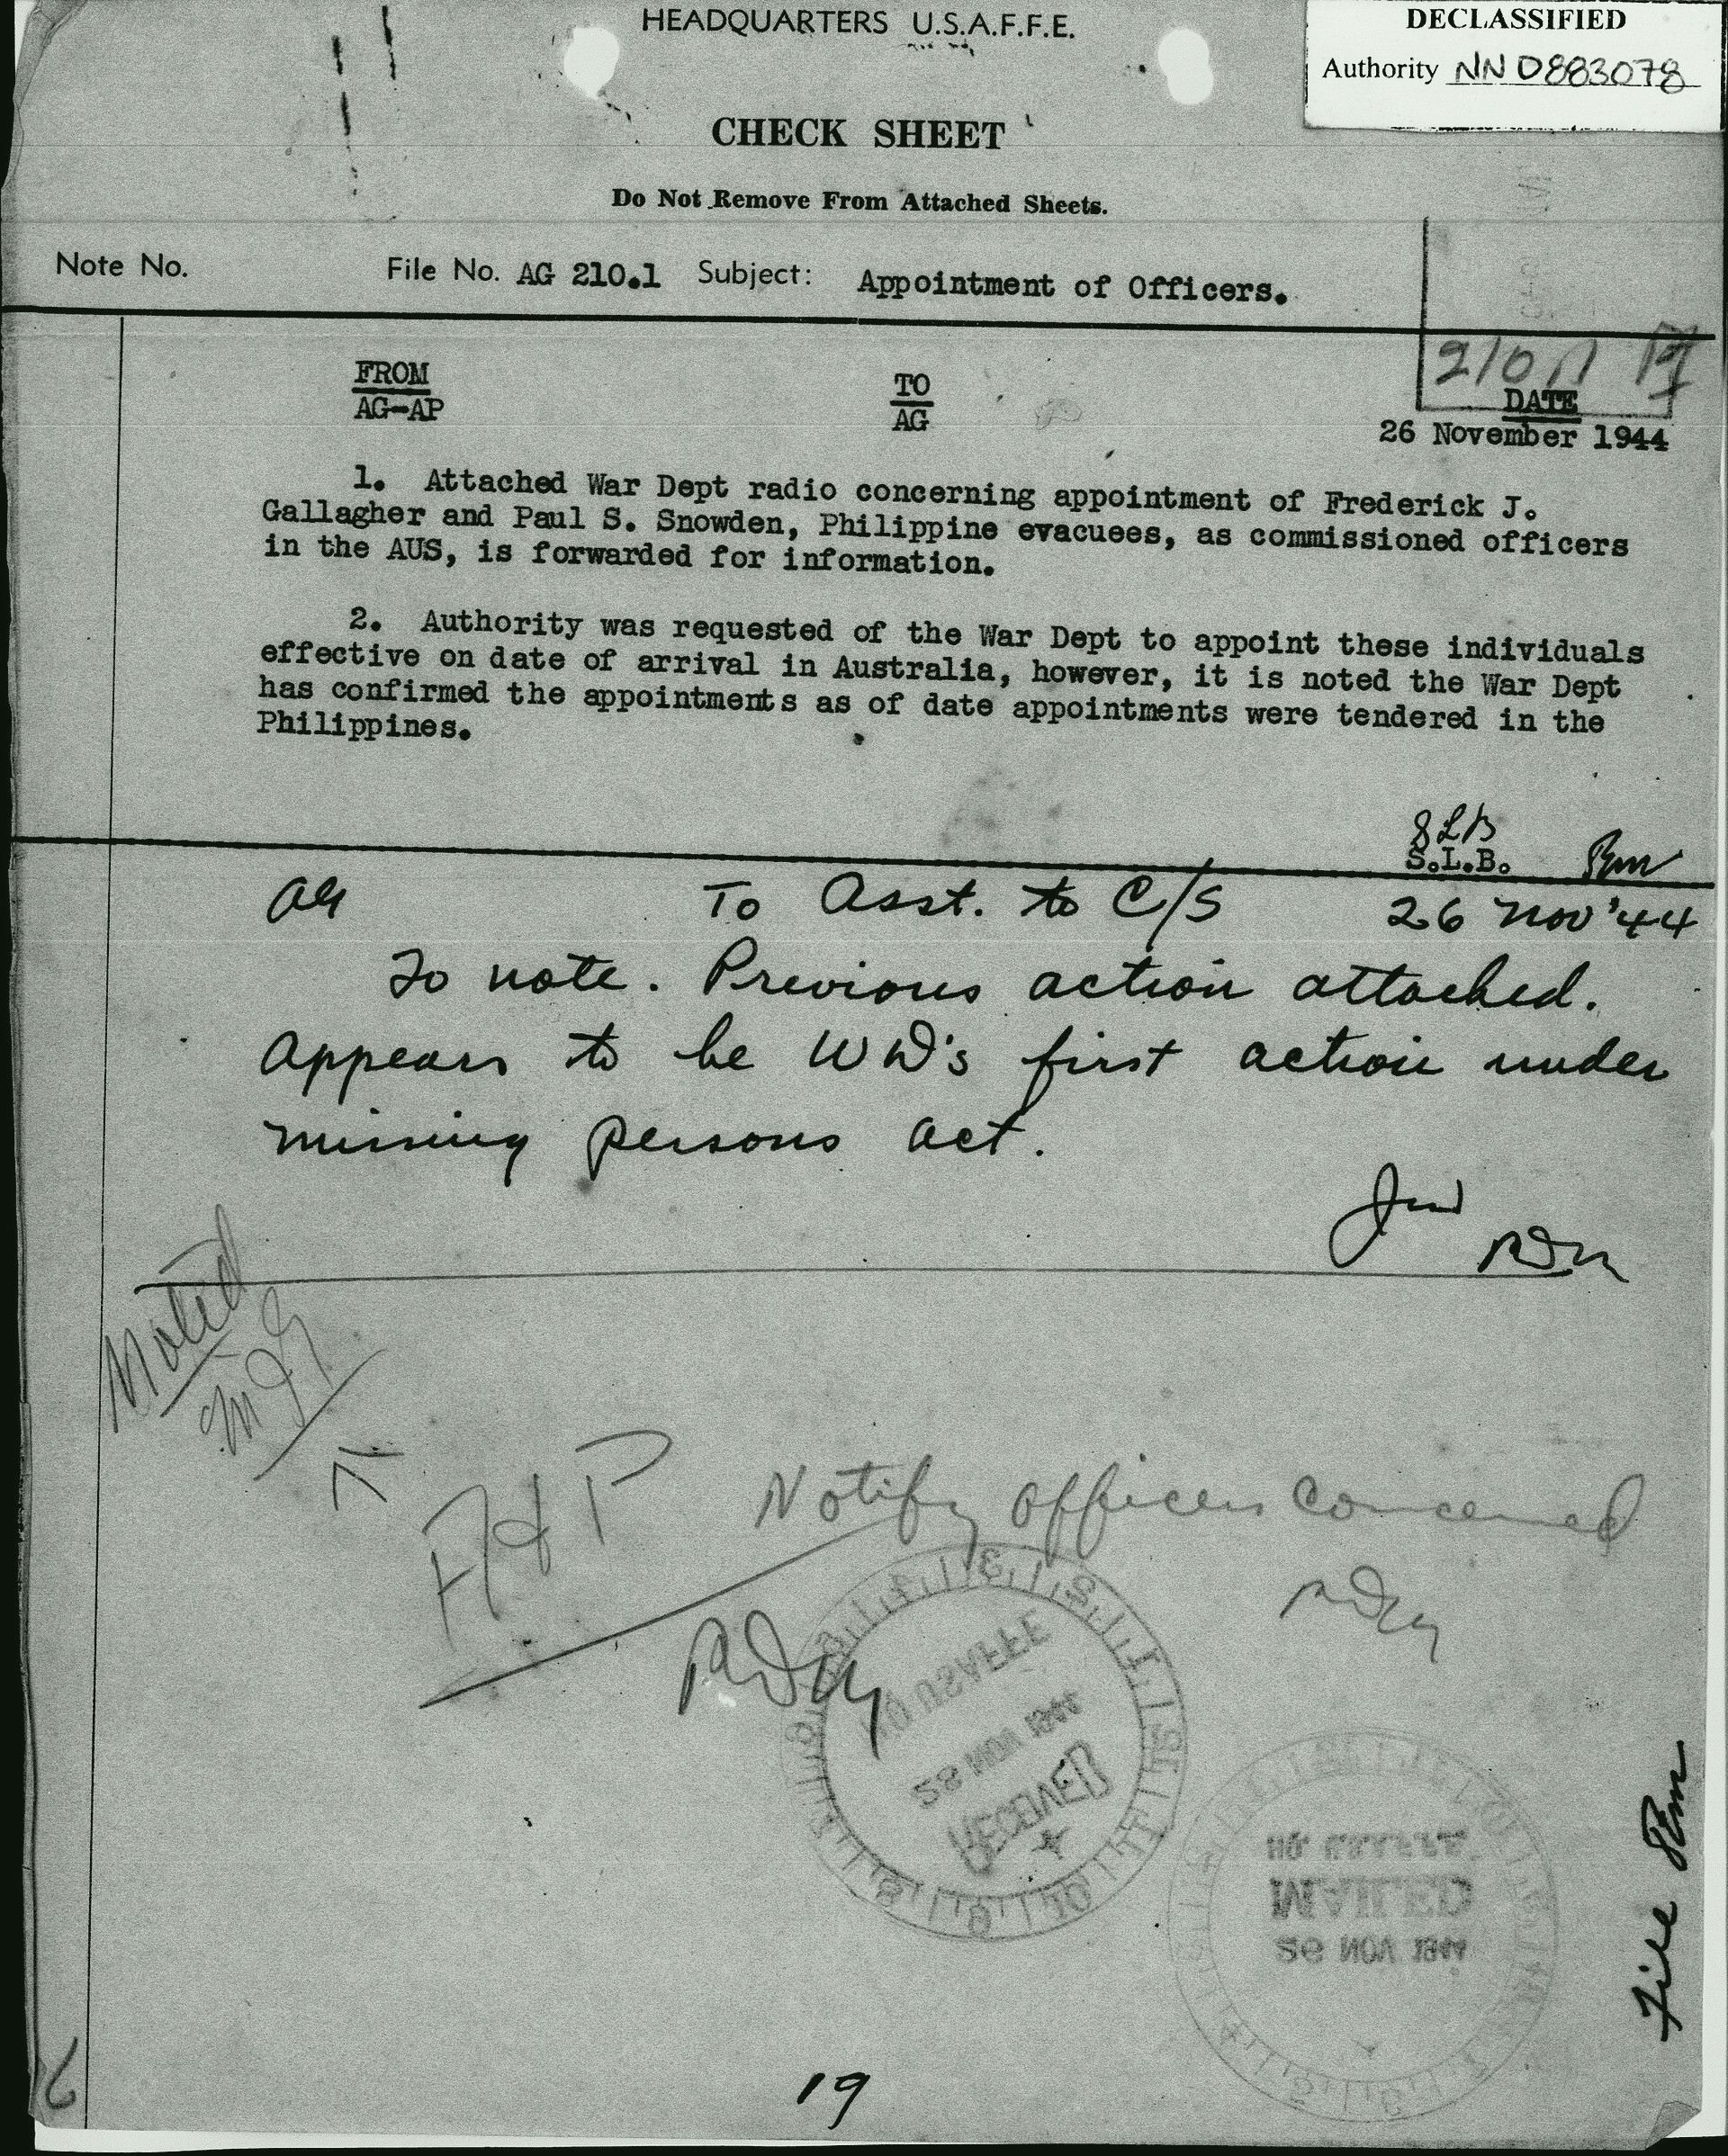 HEADQUARTERS U.S.A.F.F.E.
DECLASSIFIED
Authority NND883078
CHECK SHEET
Do Not Remove From Attached Sheets.
Note No. File No. AG 210.1 Subject: Appointment of Officers.
FROM TO DATE
AG-AP AG 26 November 1944
1. Attached War Dept radio concerning appointment of Frederick J.
Gallagher and Paul S. Snowden, Philippine evacuees, as commissioned officers
in the AUS, is forwarded for information.
2. Authority was requested of the War Dept to appoint these individuals
effective on date of arrival in Australia, however, it is noted the War Dept
has confirmed the appointments as of date appointments were tendered in the
Philippines.
SLB
S.L.B.
AG To Asst. to C/S 26 Nov '44
To note. Previous action attached.
Appears to be WD's first action under
missing persons act.
Noted
Notify officers concerned
HQ USAFFE
28 NOV 1944
RECEIVED
HQ. USAFFE.
MAILED
NOV 1944
File
19